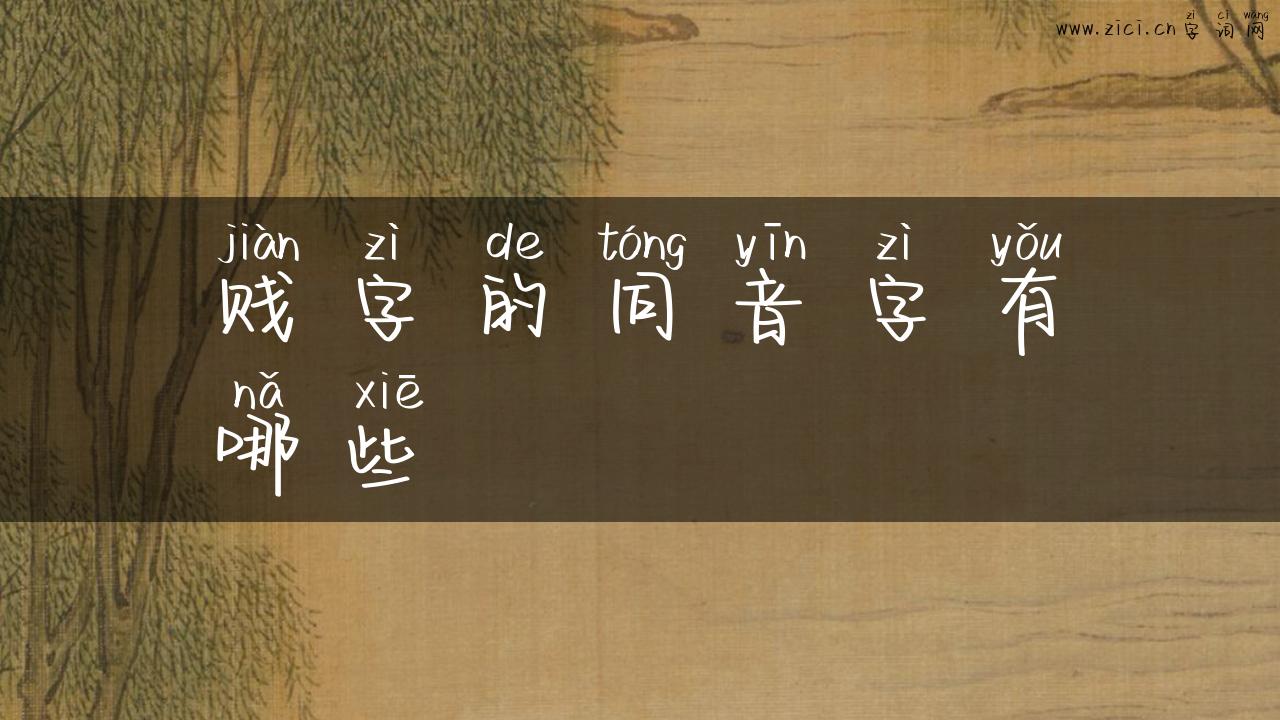 zì cí wǎng
www.zici.cn字词网
jiàn zì de tóng yīn zì yǒu
贱字的同音字有
nǎ xiē
哪些